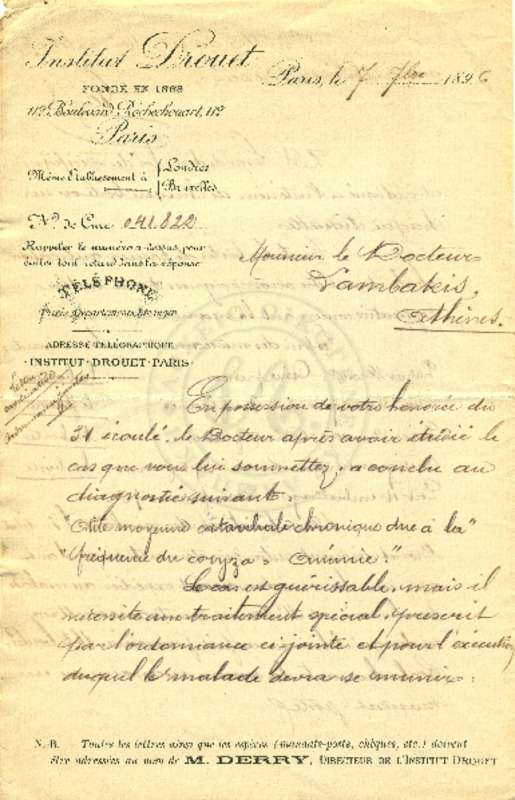 Institut Drouet
FONDÉ EN 1888
112 Boulevard Rochechouart, 112
Paris
Même Etablissement à { Londres
Bruxelles
Paris, le 7 7bre 1896
No. de Cure 041.822
Rappeler le numéro ci-dessus pour
éviter tout retard dans la réponse
TÉLÉPHONE
Paris, Départements, Etranger
ADRESSE TÉLÉGRAPHIQUE
INSTITUT-DROUET-PARIS
Monsieur le Docteur
Lambakis.
Athènes.
En possession de votre honorée du
31 écoulé, le Docteur après avoir étudié le
cas que vous lui soumettez, a conclu au
diagnostic suivant.
Otite moyenne catarrhale chronique due à la "
"fréquence du coryza. Anémie."
Le cas est guérissable, mais il
nécessite un traitement spécial, prescrit
par l'ordonnance ci-jointe et pour l'exécution
duquel le malade devra se munir :
N.-B. Toutes les lettres ainsi que les espèces (mandats-poste, chèques, etc.) doivent
être adressées au nom de M. DERRY, DIRECTEUR DE L'INSTITUT DROUET